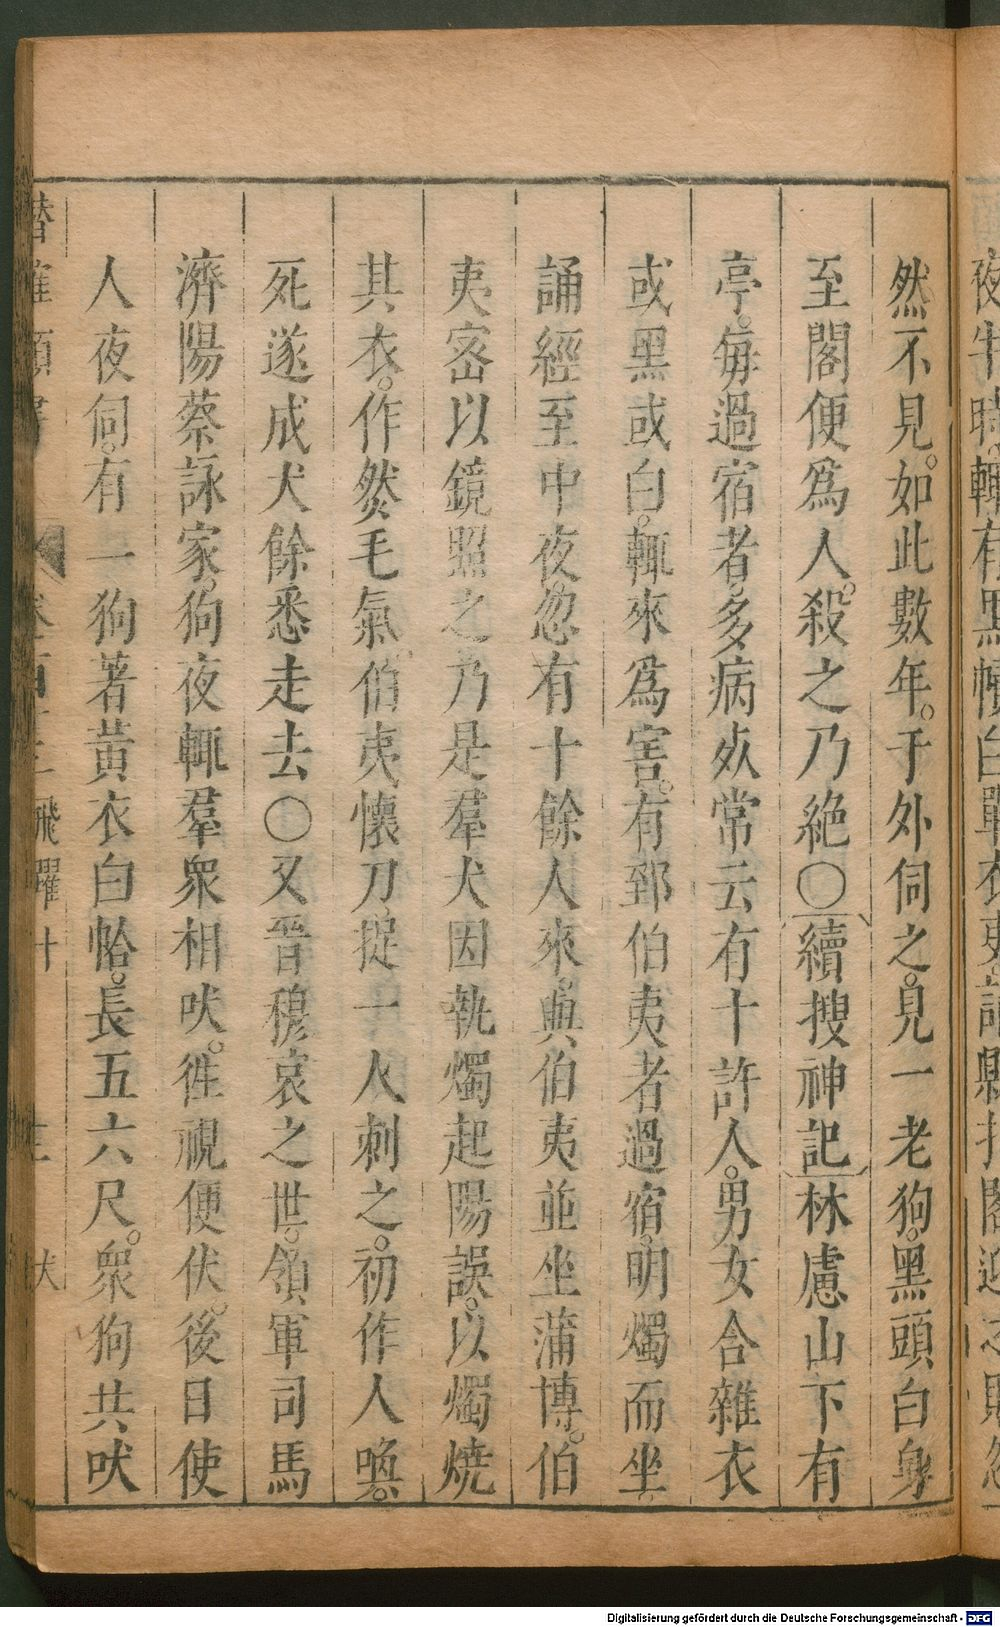 然不見。如此數年。于外伺之。見一老狗。黑頭白身
至閣便爲人。殺之乃絶〇續搜神記林慮山下有
亭。每過宿者。多病死常云有十許人。男女合雜衣
或黑或白。輒來爲害。有郅伯夷者過宿。明燭而坐。
誦經至中夜。忽有十餘人來。與伯夷並坐蒲博。伯
夷密以鏡照之乃是羣犬因執燭起陽誤。以燭燒
其衣。作燃毛氣。伯夷懷刀捉一人刺之。初作人喚。
死遂成犬餘悉走去〇又晉穆哀之世。領軍司馬
濟陽蔡詠家。狗夜輒羣衆相吠。往視便伏。後日使
人夜伺。有一狗著黃衣白帢。長五六尺。衆狗共吠
飛躍十
Digitalisierung gefördert durch die Deutsche Forschungsgemeinschaft - DFG